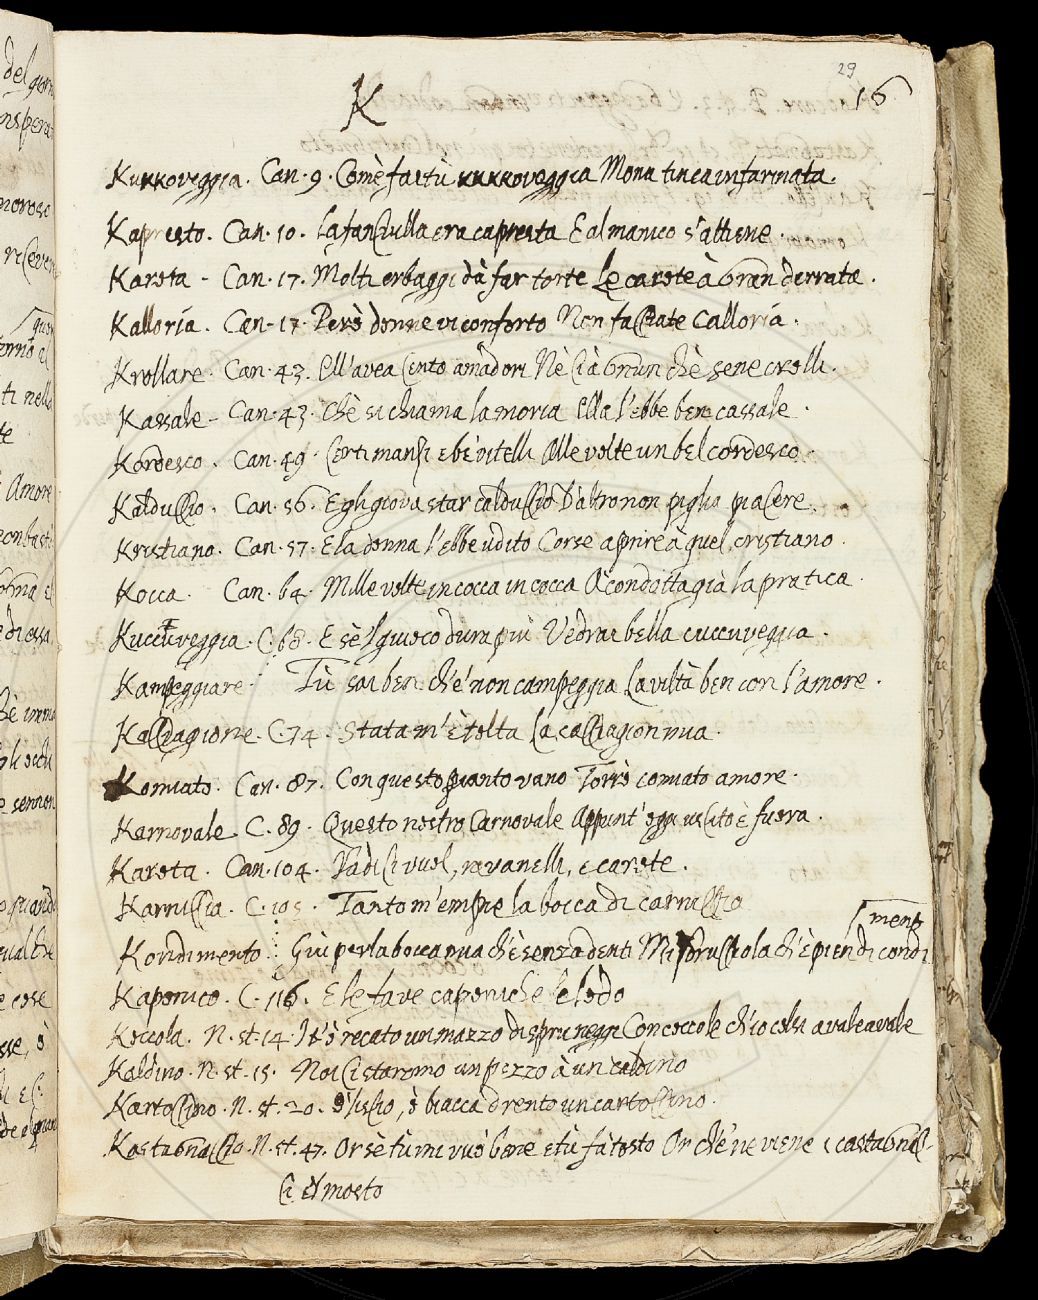 29
16
K
Kukkoveggia. Can. 9. Com'è fai tù kukkoveggia Mona tinca infarinata.
Kapresto. Can. 10. La fanciulla era capresta E al manico s'attiene.
Karota - Can. 17. Molti erbaggi dà far torte Le carote à gran derrata.
Kalloria. Can. 17. Però donne vi conforto Non facciate calloria.
Krollare. Can. 43. Ell'avea cento amadori Nè ci à gnun chè sene crolli.
Kassale - Can. 43 Chè si chiama la moria Ella l'ebbe ben cassale.
Kordesco. Can. 49. Certi manzi e bè vitelli Alle volte un bel cordesco.
Kalduccio. Can. 56. Egli giova star calduccio D'altro non piglio piacere.
Kristiano. Can. 57. E la donna l'ebbe udito Corse aprire à quel cristiano.
Kocca. Can. 64. Mille volte in cocca in cocca À condotta già la pratica.
Kuccuveggia. C. 68. E sè 'l giuoco dura più Vedrai bella cuccuveggia.
Kampeggiare. Tù sai ben ch'è non campeggia La viltà ben con l'amore.
Kacciagione. C. 74. Stata m'è tolta La cacciagion mia.
Komiato. Can. 87. Con questo guanto vano Torrò comiato amore.
Karnovale. C. 89. Questo nostro Carnovale Appunt' oggi uscito è fuora.
Karota. Can. 104. Radici vuol, ravanelli, e carote.
Karniccia. C. 105. Tanto m'empie la bocca di carniccia
Kondimento. Giù per la bocca mia ch'è senza denti Mi sdrucciola ch'è pien di condi
mento
Kaponico. C. 116. E le fave caponiche le lodo
Koccola. N. st. 14. I t'ò recato un mazzo di spruneggi Con coccole ch'io colsi avale avale
Kaldino. N. st. 15. Noi ci staremo un pezzo à un caldino
Kartoccino. N. st. 20. O liscio, ò biacca drento un cartoccino.
Kastagnaccio. N. st. 47. Or sè tù mi vuò bene e tù fà tosto Or ch'è ne viene i castagnac-
ci e 'l mosto